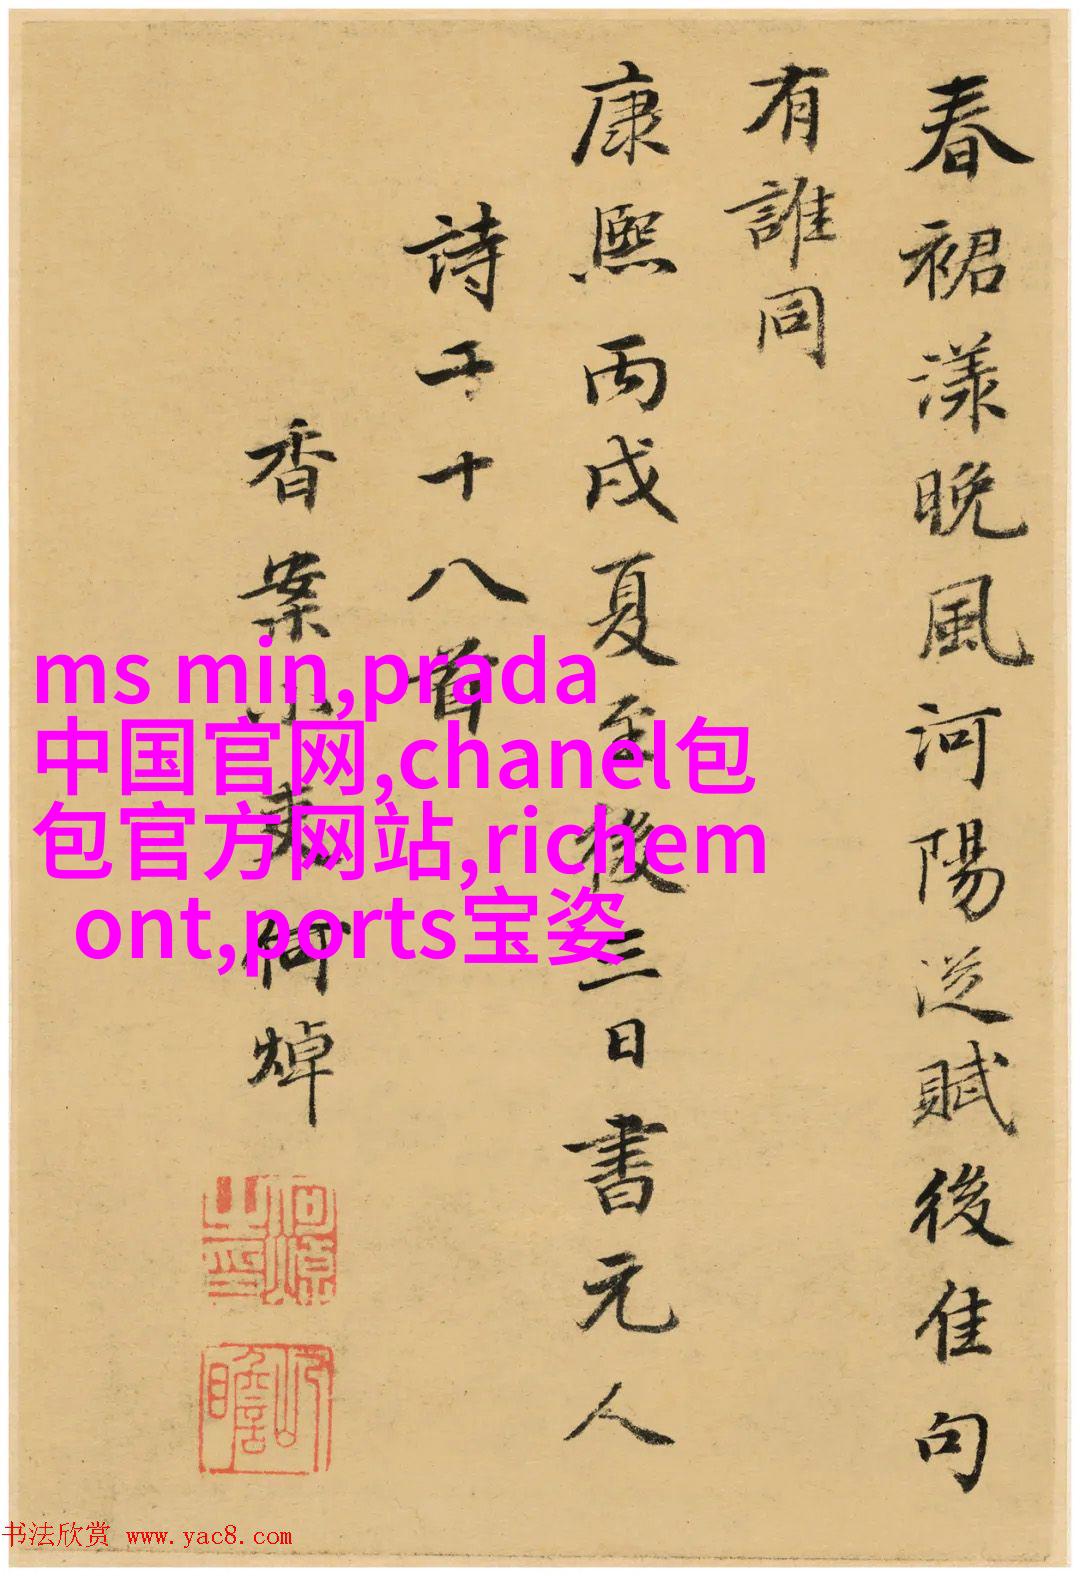 春裙漾晚風河陽從賦後佳句
有誰同
康熙丙戌夏至後三日書元人
詩十八首
香案小吏何焯
何焯之印
屺瞻
ms min,prada
中国官网,chanel包
包官方网站,richem
ont,ports宝姿
书法欣赏 www.yac8.com